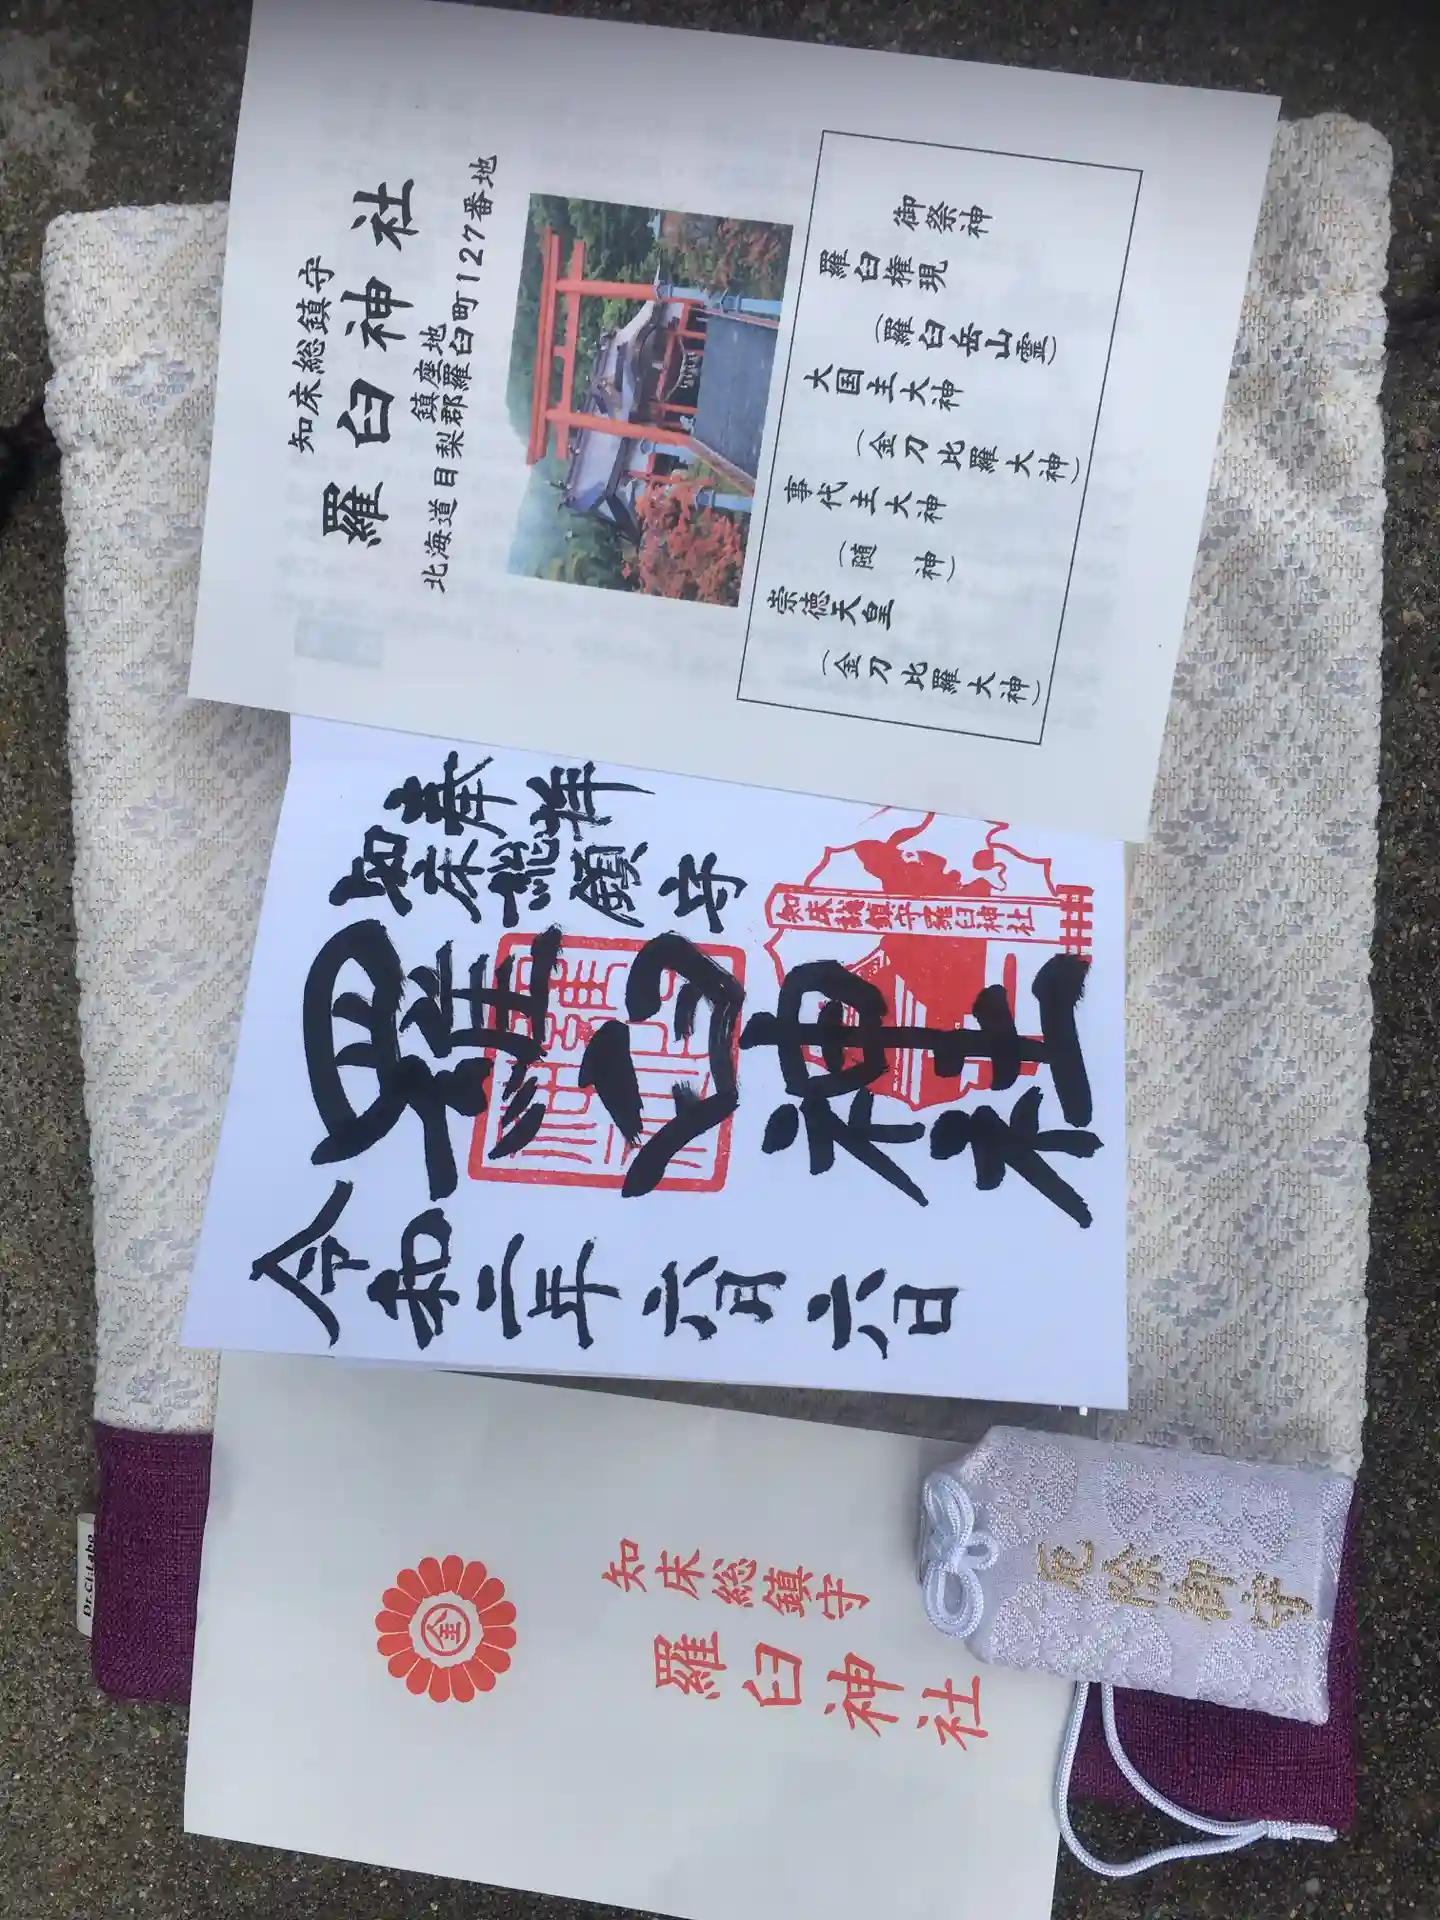 知床総鎮守
羅臼神社
鎮座地
北海道目梨郡羅臼町127番地
御祭神
羅臼権現
(羅臼岳山霊)
大国主大神
(金刀比羅大神)
事代主大神
(随神)
崇徳天皇
(金刀比羅大神)
奉拝
知床総鎮守
羅臼神社
令和二年六月六日
知床総鎮守羅臼神社
羅臼神社
金
知床総鎮守
羅臼神社
厄除御守
Dr.Ci:Labo